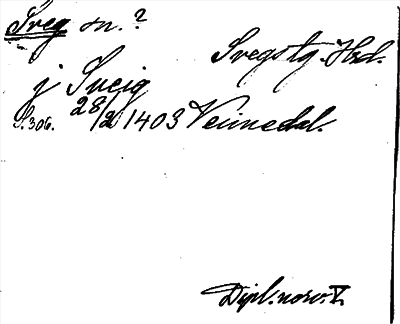 Sveg sn.?
Svegs tg. Hrd.
j Sveig
S. 306. 28/2 1403 Vemedal.
Dipl. norv. V.